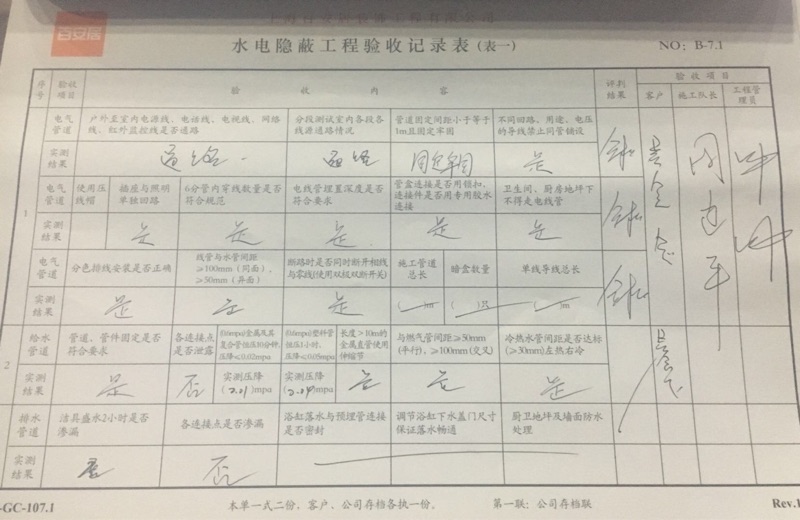 百安居
水电隐蔽工程验收记录表(表一)
NO: B-7.1
序号 验收项目 验 收 内 容 评判结果 验收项目
客户 施工队长 工程管理员
1
电气管道 户外至室内电源线、电话线、电视线、网络线、红外监控线是否通路 分段测试室内各段各线源通路情况 管道固定间距小于等于1m且固定牢固 不同回路、用途、电压的导线禁止同管铺设
实测结果 通路 通路 固定牢固 是
电气管道 使用压线帽 插座与照明单独回路 6分管内穿线数量是否符合规范 电线管埋置深度是否符合要求 管盒连接是否用锁扣,连接件是否用专用胶水连接 卫生间、厨房地坪下不得走电线管
实测结果 是 是 是 是 是
电气管道 分色排线安装是否正确 线管与水管间距≥100mm(同面)、≥50mm(异面) 断路时是否同时断开相线与零线(使用双极双断开关) 施工管道总长 暗盒数量 单线导线总长
实测结果 是 是 是 ( )m ( )只 ( )m
2
给水管道 管道、管件固定是否符合要求 各连接点是否泄露 (0.6mpa)金属及其复合管恒压10分钟,压降≤0.02mpa (0.6mpa)塑料管恒压1小时,压降≤0.05mpa 长度>10m的金属直管使用伸缩节 与燃气管间距≥50mm(平行),≥100mm(交叉) 冷热水管间距是否达标(≥30mm)左热右冷
实测结果 是 否 实测压降( )mpa 实测压降( )mpa 是 是 是
排水管道 洁具盛水2小时是否渗漏 各连接点是否渗漏 浴缸落水与预埋管连接是否密封 调节浴缸下水盖门尺寸保证落水畅通 厨卫地坪及墙面防水处理
实测结果 否
-GC-107.1 本单一式二份,客户、公司存档各执一份。 第一联:公司存档联 Rev.1